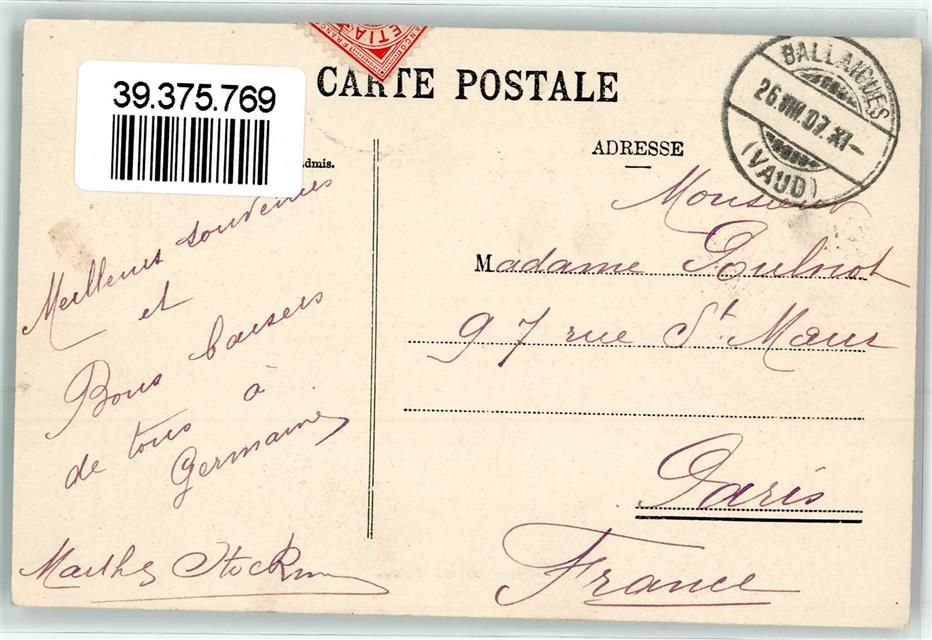 39.375.769
FRANCO
ETIA
FRANCO
CARTE POSTALE
BALLAIGUES
26.VIII.07.XI–
(VAUD)
admis.
ADRESSE
Meilleurs souvenirs
et
Bons baisers
de tous à
Germaine
Marthe
Monsieur
Madame
97 rue St. Maur
Paris
France